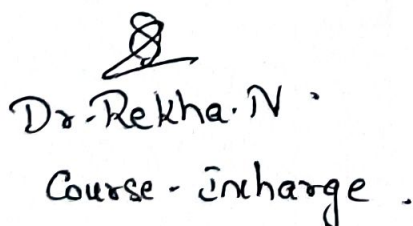 Dr. Rekha. N.
Course - Incharge.